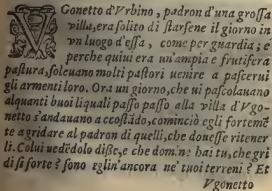 VGonetto d'Vrbino, padron d'una grossa
villa, era solito di starsene il giorno in
vn luogo d'essa, come per guardia; e
perche quiui era un'ampia e frutifera
pastura, soleuano molti pastori uenire a pascerui
gli armenti loro. Ora un giorno, che ui pascolauano
alquanti buoi liquali passo passo alla villa d'Vgo-
netto s'andauano accostãdo, cominciò egli fortemẽ
te a gridare al padron di quelli, che douesse ritener
li. Colui uedẽdolo disse, e che domine hai tu, che gri
di si forte? sono eglin'ancora ne' tuoi terreni? Et
Vgonetto